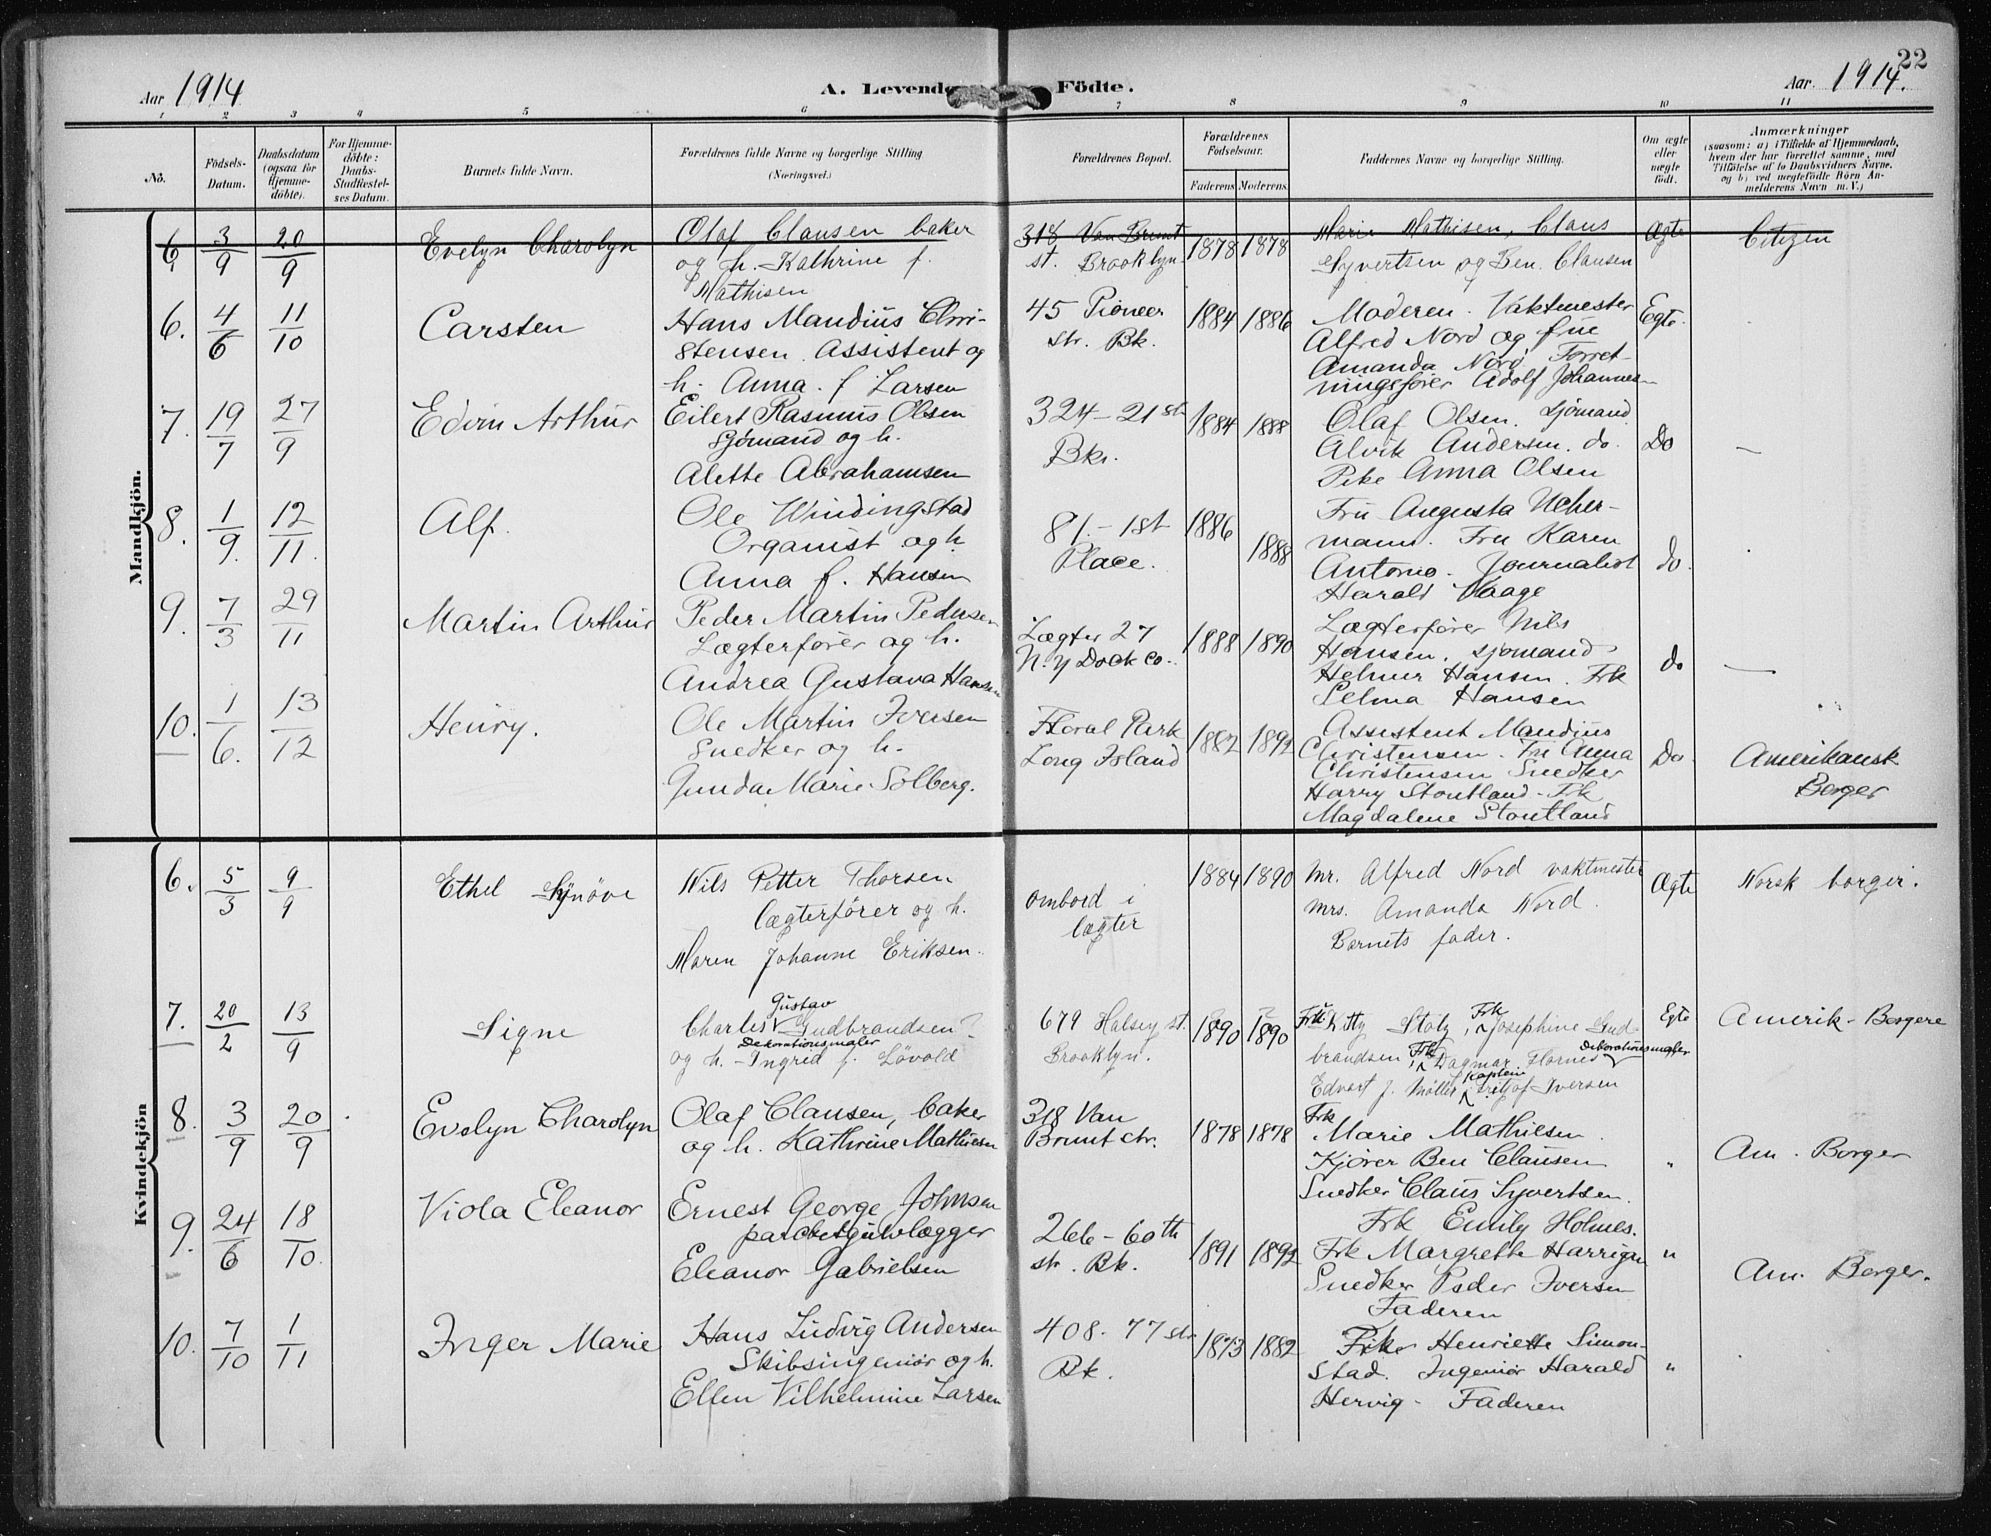 22
Aar 1914
A. Levende Födte.
Aar. 1914.
1 2 3 4 5 6 7 8 9 10 11
No.
Födsels-Datum.
Daabsdatum (ogsaa for Hjemme-döbte).
For Hjemme-döbte: Daabs-Stadfæstel-ses Datum.
Barnets fulde Navn.
Forældrenes fulde Navne og borgerlige Stilling
(Næringsvei.)
Forældrenes Bopæl.
Forældrenes Födselsaar.
Faderens Moderens
Faddernes Navne og borgerlige Stilling.
Om ægte eller uægte födt.
Anmærkninger
(saasom: a) i Tilfælde af Hjemmedaab,
hvem der har forrettet samme, med
Tilföielse af to Daabsvidners Navne.
og b) ved uægtefödte Börn An-
melderens Navn m. V.)
Mandkjön.
6. 3/9 20/9 Evelyn Charolyn
Olaf Clausen baker
og h. Kathrine f.
Mathisen
318 Van Brunt
st. Brooklyn
1878 1878
Marie Mathisen, Claus
Syvertsen og Ben. Clausen
Ægte
Citizen
6. 4/6 11/10 Carsten
Hans Mandius Chri-
stensen. Assistent og
h. Anna. f Larsen
45 Pioneer
str. Bk.
1884 1886
Moderen. Vaktmester
Alfred Nord og frue
Amanda Nord Forret-
ningsfører Adolf Johannes
Egte.
7. 19/7 27/9 Edvin Arthur
Eilert Rasmus Olsen
Sjømand og h.
Alette Abrahamsen
324 - 21 st
Bk.
1884 1888
Olaf Olsen. Sjømand
Alvik Andersen. do.
Pike Anna Olsen
Do
—
8. 1/9. 12/11. Alf.
Ole Windingstad
Organist og h.
Anna f. Hansen
81. - 1st
Place.
1886 1888
Fru Augusta Ucher-
mann. Fru Karen
Antonio. Journalist
Harald Vaage
do.
9. 7/3 29/11 Martin Arthur
Peder Martin Pedersen
Lægterfører og h.
Andrea Gustava Hansen
Lægter 27
N.Y Dock co.
1888 1890
Lægterfører Nils
Hansen. sjømand
Helmer Hansen. Frk
Selma Hansen
do
—
10. 1/6. 13/12 Henry.
Ole Martin Iversen
Snedker og h.
Gunda Marie Solberg.
Floral Park
Long Island
1882 1892
Assistent Mandius
Christensen. Fru Anna
Christensen Snedker
Harry Stoutland - Frk
Magdalene Stoutland
Do.
Amerikansk
Borger
Kvindekjön
6. 5/3 9/9 Ethel Synöve
Nils Petter Thorsen
lægterfører og h.
Maren Johanne Eriksen.
ombord i
lægter
1884 1890
Mr. Alfred Nord vaktmester
Mrs. Amanda Nord.
Barnets fader.
Ægte
Norsk borger.
7. 20/2 13/9 Signe
Gustav
Charles Gudbrandsen
Dekorationsmaler
og h. - Ingrid f. Lövold
679 Halsey st.
Brooklyn.
1890 1890
Frk Kitty Stolz, Frk Josephine Gud-
brandsen, Frk Dagmar Flornes Dekorationsmaler
Edvart J. Møller, Kaptein Fritjof Iversen
Egte
Amerik - Borgere
8. 3/9 20/9 Evelyn Charolyn
Olaf Clausen, baker
og h. Kathrine Mathiesen
318 Van
Brunt str.
1878 1878
Frk
Marie Mathiesen.
Kjører Ben Clausen
Snedker Claus Syvertsen.
"
Am. Borger
9. 24/6 18/10. Viola Eleanor
Ernest George Johnsen
parketgulvlægger
Eleanor Gabrielsen
266 - 60th
str. Bk.
1891 1892
Frk Emily Holmes.
Frk Margrethe Harrigan
Snedker Peder Iversen
Faderen
"
Am. Borger.
10. 7/10 1/11 Inger Marie
Hans Ludvig Andersen
Skibsingeniør og h.
Ellen Vilhelmine Larsen
408. 77 str
Bk.
1873 1882
Pike Henriette Simon-
stad. Ingeniør Harald
Hervig - Faderen
"